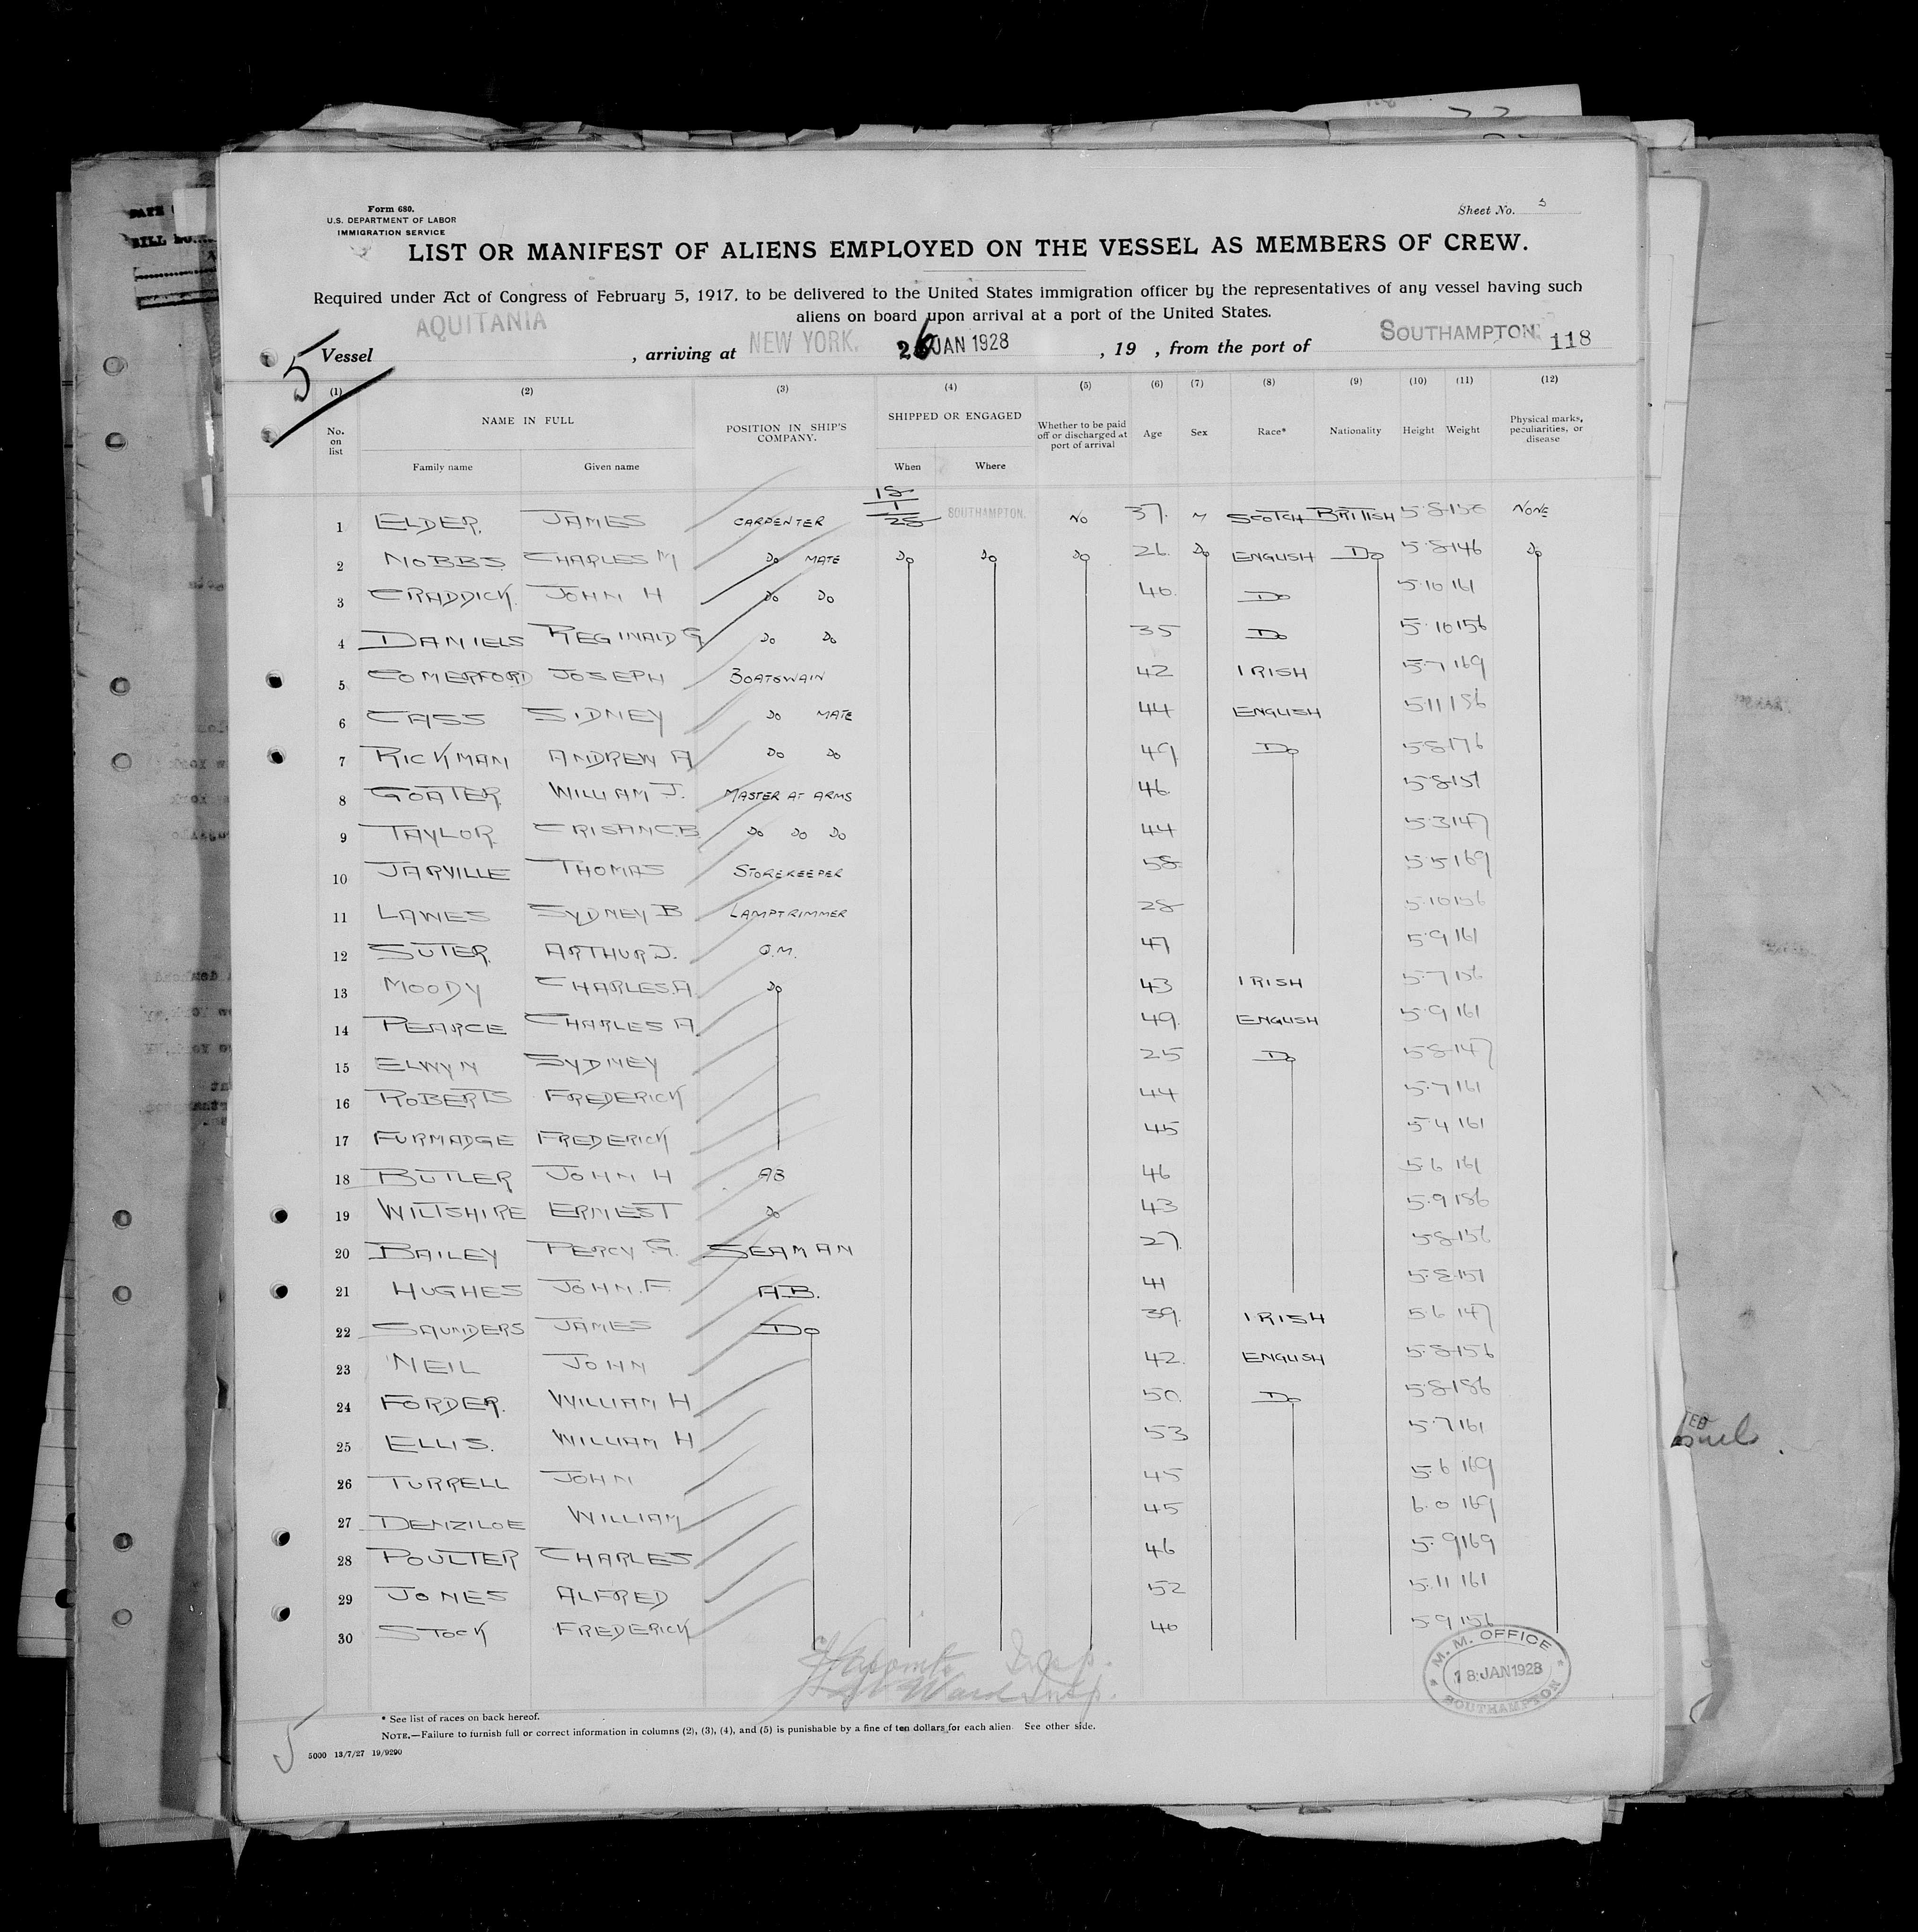 Form 680.
U.S. DEPARTMENT OF LABOR
IMMIGRATION SERVICE
Sheet No. 5
LIST OR MANIFEST OF ALIENS EMPLOYED ON THE VESSEL AS MEMBERS OF CREW.
Required under Act of Congress of February 5, 1917, to be delivered to the United States immigration officer by the representatives of any vessel having such
aliens on board upon arrival at a port of the United States.
5 Vessel AQUITANIA, arriving at NEW YORK. 26 JAN 1928, 19 , from the port of SOUTHAMPTON. 118
(1) (2) (3) (4) (5) (6) (7) (8) (9) (10) (11) (12)
No. on list NAME IN FULL POSITION IN SHIP'S COMPANY. SHIPPED OR ENGAGED Whether to be paid off or discharged at port of arrival Age Sex Race* Nationality Height Weight Physical marks, peculiarities, or disease
Family name Given name When Where
1 ELDER. JAMES CARPENTER 18/1/28 SOUTHAMPTON. NO 37. M SCOTCH BRITISH 5-8 156 NONE
2 NOBBS CHARLES M DO MATE DO DO DO 26. DO ENGLISH DO 5-8 146 DO
3 CRADDICK. JOHN H DO DO 40. DO 5-10 161
4 DANIELS REGINALD G DO DO 35 DO 5-10 156
5 COMERFORD JOSEPH BOATSWAIN 42 IRISH 5-7 169
6 CASS SIDNEY DO MATE 44 ENGLISH 5-11 186
7 RICKMAN ANDREW A DO DO 49 DO 5-8 176
8 GOATER. WILLIAM J. MASTER AT ARMS 46. 5-8 151
9 TAYLOR. CRISANC.B DO DO DO 44 5-3 147
10 JARVILLE THOMAS STOREKEEPER 58. 5-5 169
11 LAWES SYDNEY B LAMPTRIMMER 28 5-10 156
12 SUTER. ARTHUR J. Q.M. 47 5-9 161
13 MOODY CHARLES.A. DO 43 IRISH 5-7 156
14 PEARCE CHARLES A 49. ENGLISH 5-9 161
15 ELWYN SYDNEY 25 DO 5-8 147
16 ROBERTS FREDERICK 44 5-7 161
17 FURMADGE FREDERICK 45 5-4 161
18 BUTLER JOHN H AB 46 5-6 161
19 WILTSHIRE ERNEST DO 43 5-9 186
20 BAILEY PERCY G. SEAMAN 27. 5-8 156
21 HUGHES JOHN.F. A.B. 41 5-8 151
22 SAUNDERS JAMES DO 39. IRISH 5-6 147
23 NEIL JOHN 42. ENGLISH 5-8 156
24 FORDER. WILLIAM H 50. DO 5-8 186
25 ELLIS. WILLIAM H 53 5-7 161
26 TURRELL JOHN 45 5-6 169
27 DENZILOE WILLIAM 45 6-0 169
28 POULTER CHARLES 46 5-9 169
29 JONES ALFRED 52 5-11 161
30 STOCK FREDERICK 40 5-9 156
Insp.
Ward Insp.
M. M. OFFICE
18 JAN 1928
SOUTHAMPTON
* See list of races on back hereof.
NOTE.—Failure to furnish full or correct information in columns (2), (3), (4), and (5) is punishable by a fine of ten dollars for each alien. See other side.
5
5000 13/7/27 19/9290